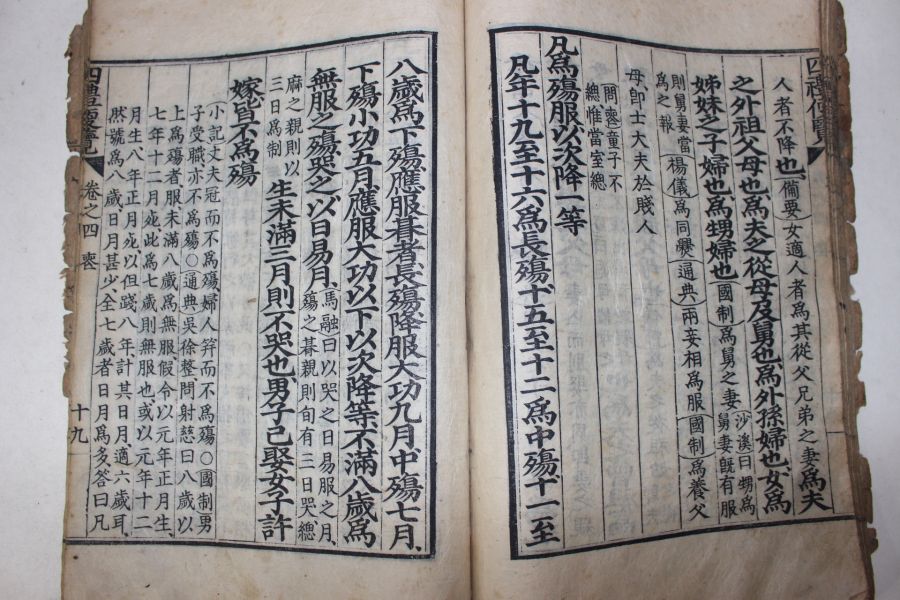 四禮便覽
人者不降也(備要)女適人者爲其從父兄弟之妻爲夫
之外祖父母也爲夫之從母及舅也爲外孫婦也女爲
姊妹之子婦也爲甥婦也(國制)爲舅之妻
沙溪曰甥爲
舅妻旣有服
則舅妻當
爲之報
(楊儀)爲同爨(通典)兩妾相爲服(國制)爲養父
母卽士大夫於賤人
童子不
緦惟當室緦
凡爲殤服以次降一等
凡年十九至十六爲長殤十五至十二爲中殤十一至
八歲爲下殤應服朞者長殤降服大功九月中殤七月
下殤小功五月應服大功以下以次降等不滿八歲爲
無服之殤哭之以日易月
馬融曰以哭之日易服之月
殤之朞親則旬有三日哭緦
麻之親則以
三日爲制
生未滿三月則不哭也男子已娶女子許
嫁皆不爲殤
小記丈夫冠而不爲殤婦人笄而不爲殤○(國制)男
子受職亦不爲殤○(通典)吳徐整問射慈曰八歲以
上爲殤者服未滿八歲爲無服假令以元年正月生
七年十二月死此爲七歲則無服也或以元年十二
月生八年正月死以但踐八年計其日月適六歲耳
然號爲八歲日月甚少全七歲者日月爲多答曰凡
四禮便覽 卷之四 喪 十九